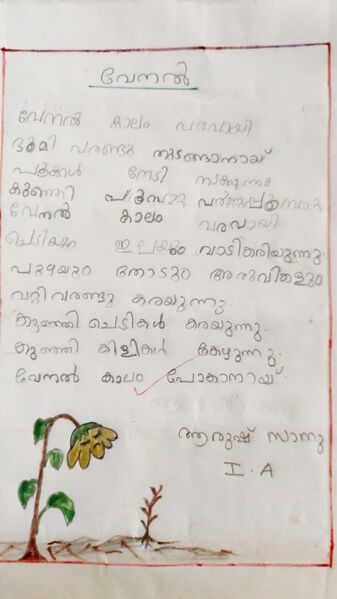 വേനൽ
വേനൽ കാലം വരവായി
ഭൂമി വരണ്ടു തുടങ്ങാനായ്
പൂക്കൾ തേടി നടക്കുന്നു
കുഞ്ഞി പൂമ്പാറ്റ
വേനൽ കാലം വരവായി
ചെടിയും ഇലയും വാടികരിയുന്നു.
പുഴയും തോടും അരുവികളും
വറ്റിവരണ്ടു കരയുന്നു.
കുഞ്ഞി ചെടികൾ കരയുന്നു.
കുഞ്ഞി കിളികൾ കേഴുന്നു.
വേനൽ കാലം പോകാനായ്.
ആരുഷ് സാനു
I. A